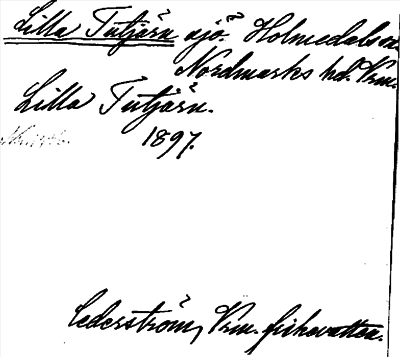 Lilla Tutjärn sjö. Holmedals sn.
Nordmarks hd. Vrm.
Lilla Tutjärn.
1897.
Cederström, Vrm. fiskevatten.